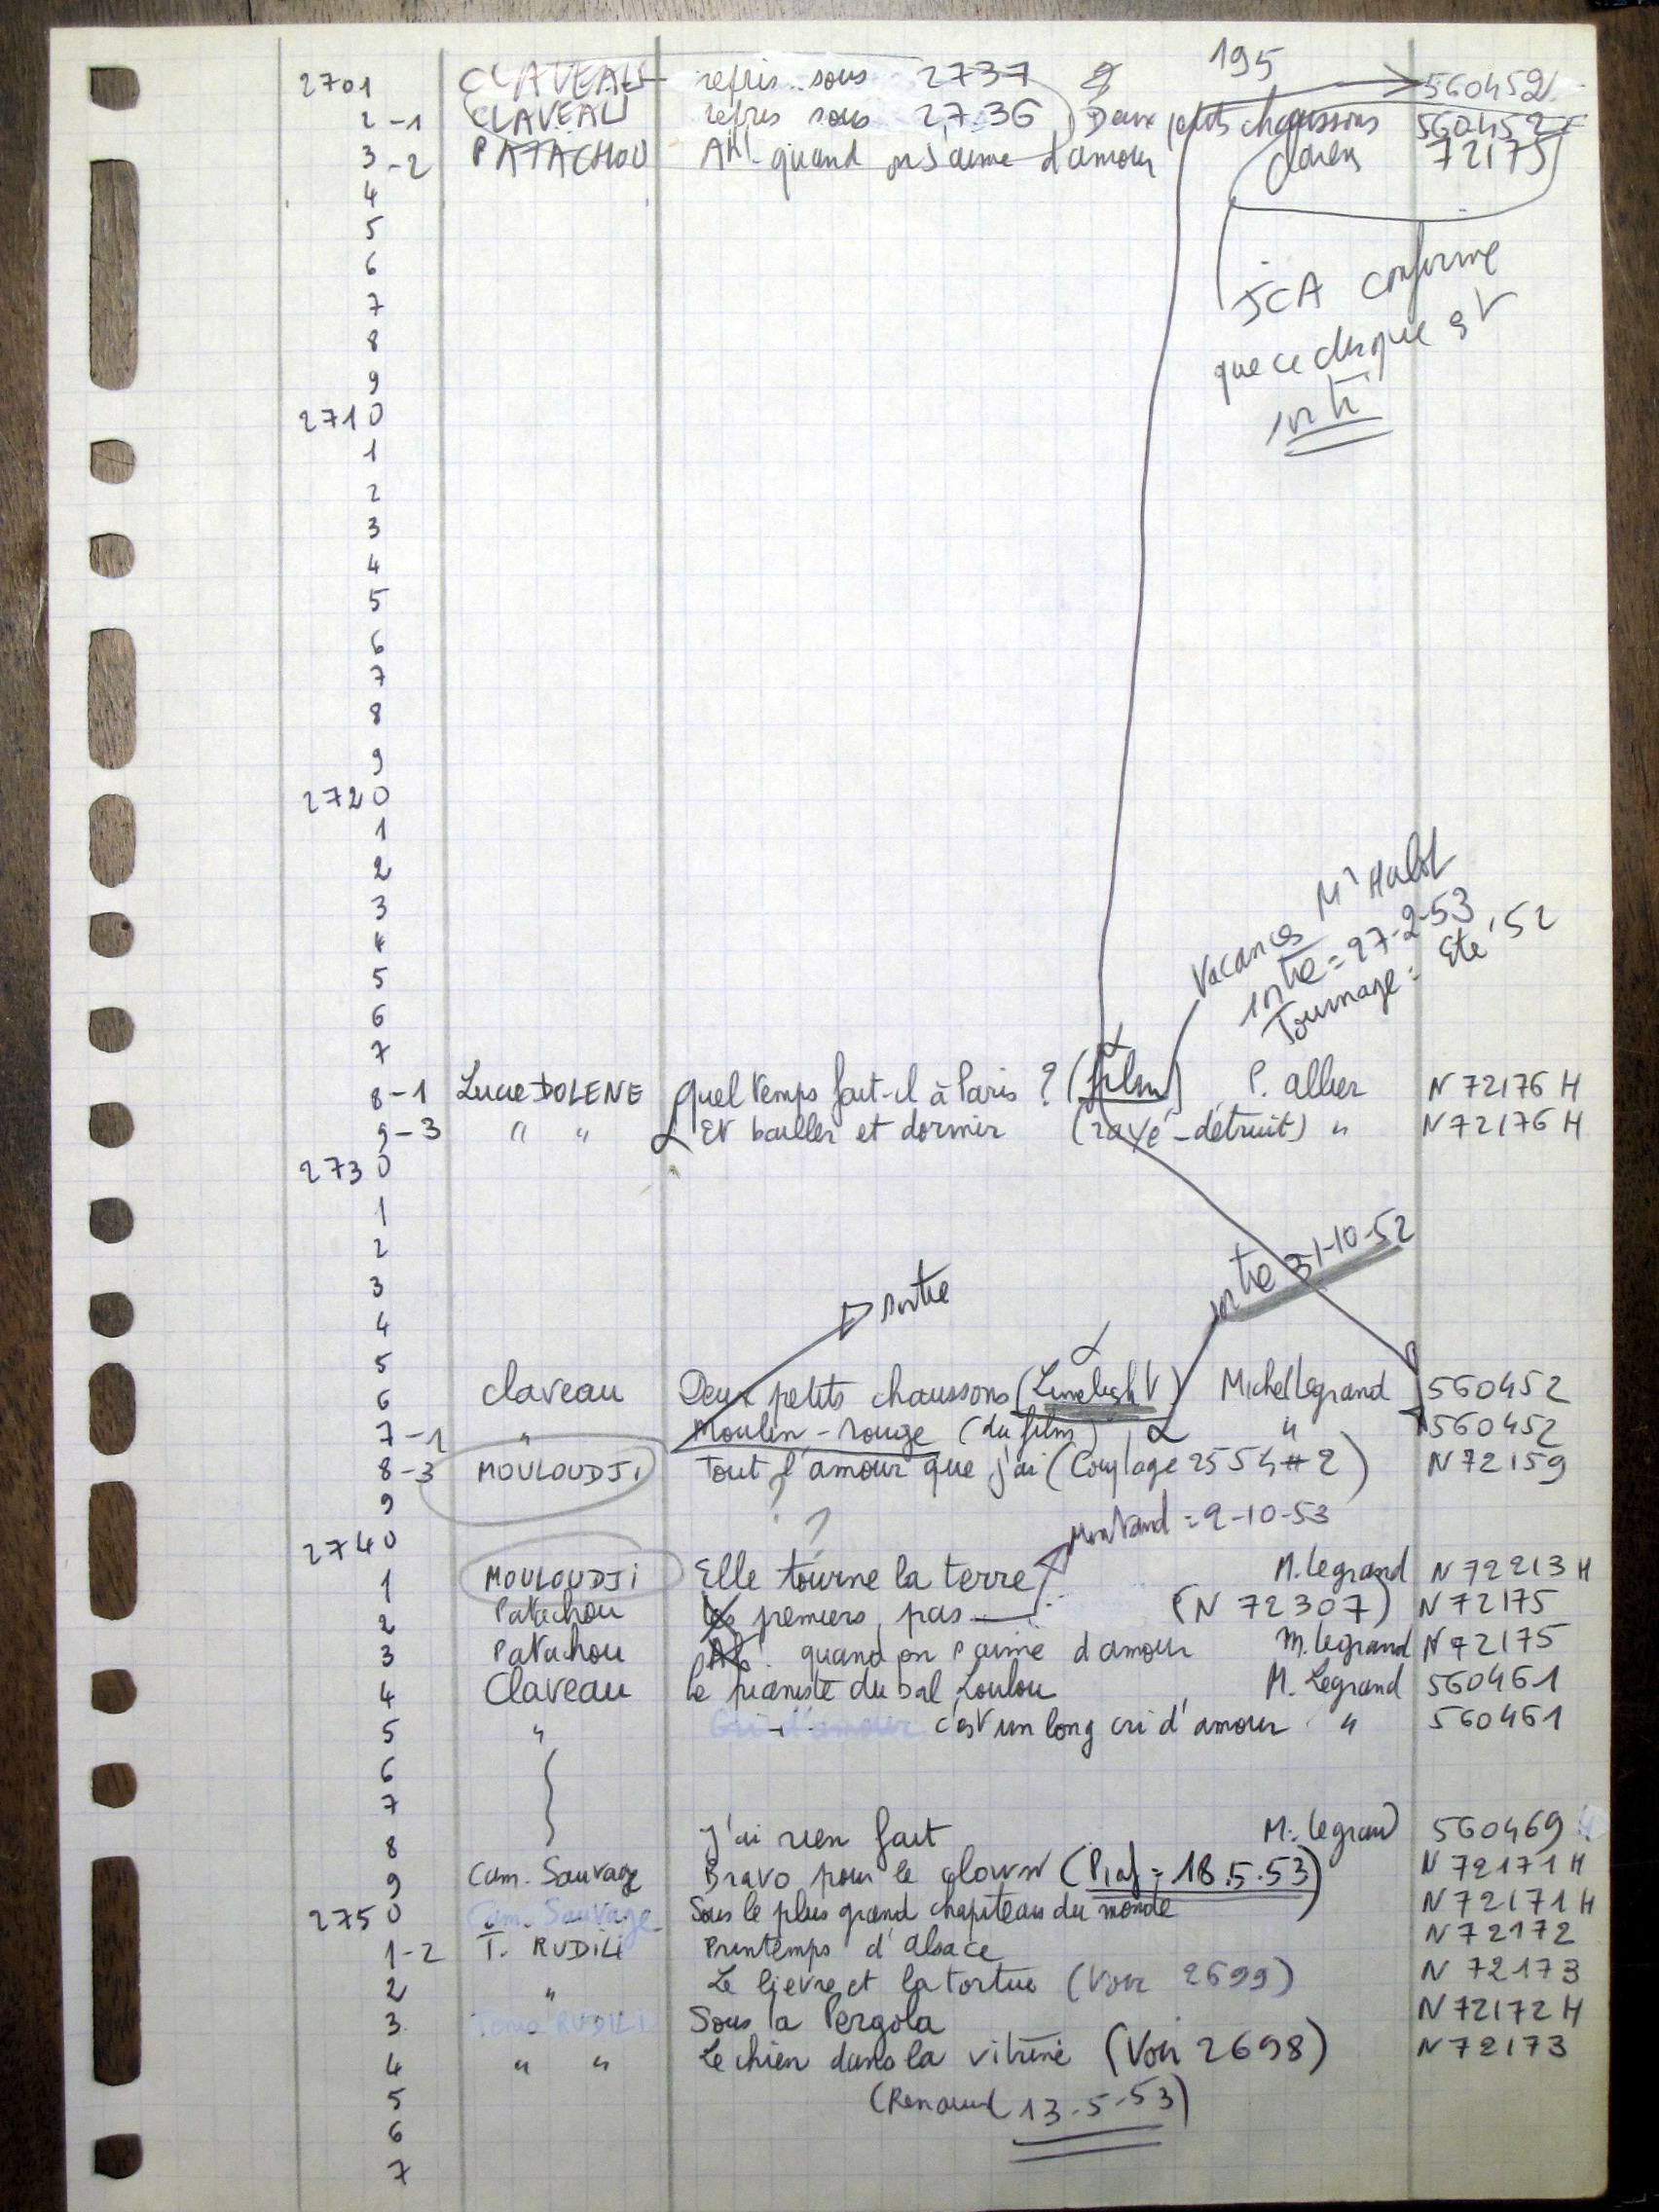 195
2701 CLAVEAU refris sous 2737 560452
2-1 CLAVEAU refris sous 2736 Deux petits chaussons 560452
3-2 PATACHOU Ah! quand on s'aime d'amour 72175
4
5
6
JCA confirme
7
que ce disque st
8
sorti
9
2710
1
2
3
4
5
6
7
8
9
2720
1
2
3
4
5
6
7
Vacances Mr Hulot
sortie = 27-2-53
Tournage = Eté '52
8-1 Lucie DOLENE Quel temps fait-il à Paris ? (film) P. allier N 72176 H
9-3 " " Et bailler et dormir (rayé - détruit) " N 72176 H
2730
1
2
3
4
5
sortie
sortie 31-10-52
6 Claveau Deux petits chaussons (Limelight) Michel Legrand 560452
7-1 " Moulin-rouge (du film) " 560452
8-3 MOULOUDJI Tout l'amour que j'ai (Couplage 2554 # 2) N 72159
9
? ?
Montand = 2-10-53
2740
1 MOULOUDJI Elle tourne la terre M. Legrand N 72213 H
2 Patachou Les premiers pas (N 72307) N 72175
3 Patachou Ah! quand on s'aime d'amour M. Legrand N 72175
4 Claveau le pianiste du bal Loulou M. Legrand 560461
5 " Cri d'amour c'est un long cri d'amour " 560461
6
7
8 J'ai rien fait M. Legrand 560469
9 Cam. Sauvage Bravo pour le clown (Piaf = 18.5.53) N 72171 H
2750 Cam. Sauvage Sous le plus grand chapiteau du monde N 72171 H
1-2 T. RUDILI Printemps d'alsace N 72172
2 " Le lievre et la tortue (Voir 2699) N 72173
3 Tony RUDILI Sous la Pergola N 72172 H
4 " " Le chien dans la vitrine (Voir 2698) N 72173
5 (Renaud 13-5-53)
6
7